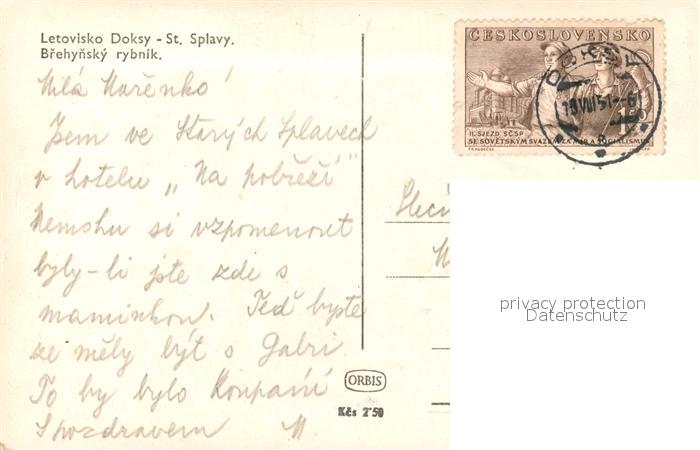 Letovisko Doksy - St. Splavy.
Břehyňský rybník.
Milá Mařenko!
Jsem ve Starých Splavech
v hotelu „Na pobřeží"
Nemohu si vzpomenout
byly-li jste zde s
maminkou. Teď byste
ze měly být s Gabri
To by bylo koupání
S pozdravem M.
ČESKOSLOVENSKO
II. SJEZD SČSP
SE SOVĚTSKÝM SVAZEM ZA MÍR A SOCIALISMUS
DOKSY
Slečn
privacy protection
Datenschutz
ORBIS
Kčs 2'50